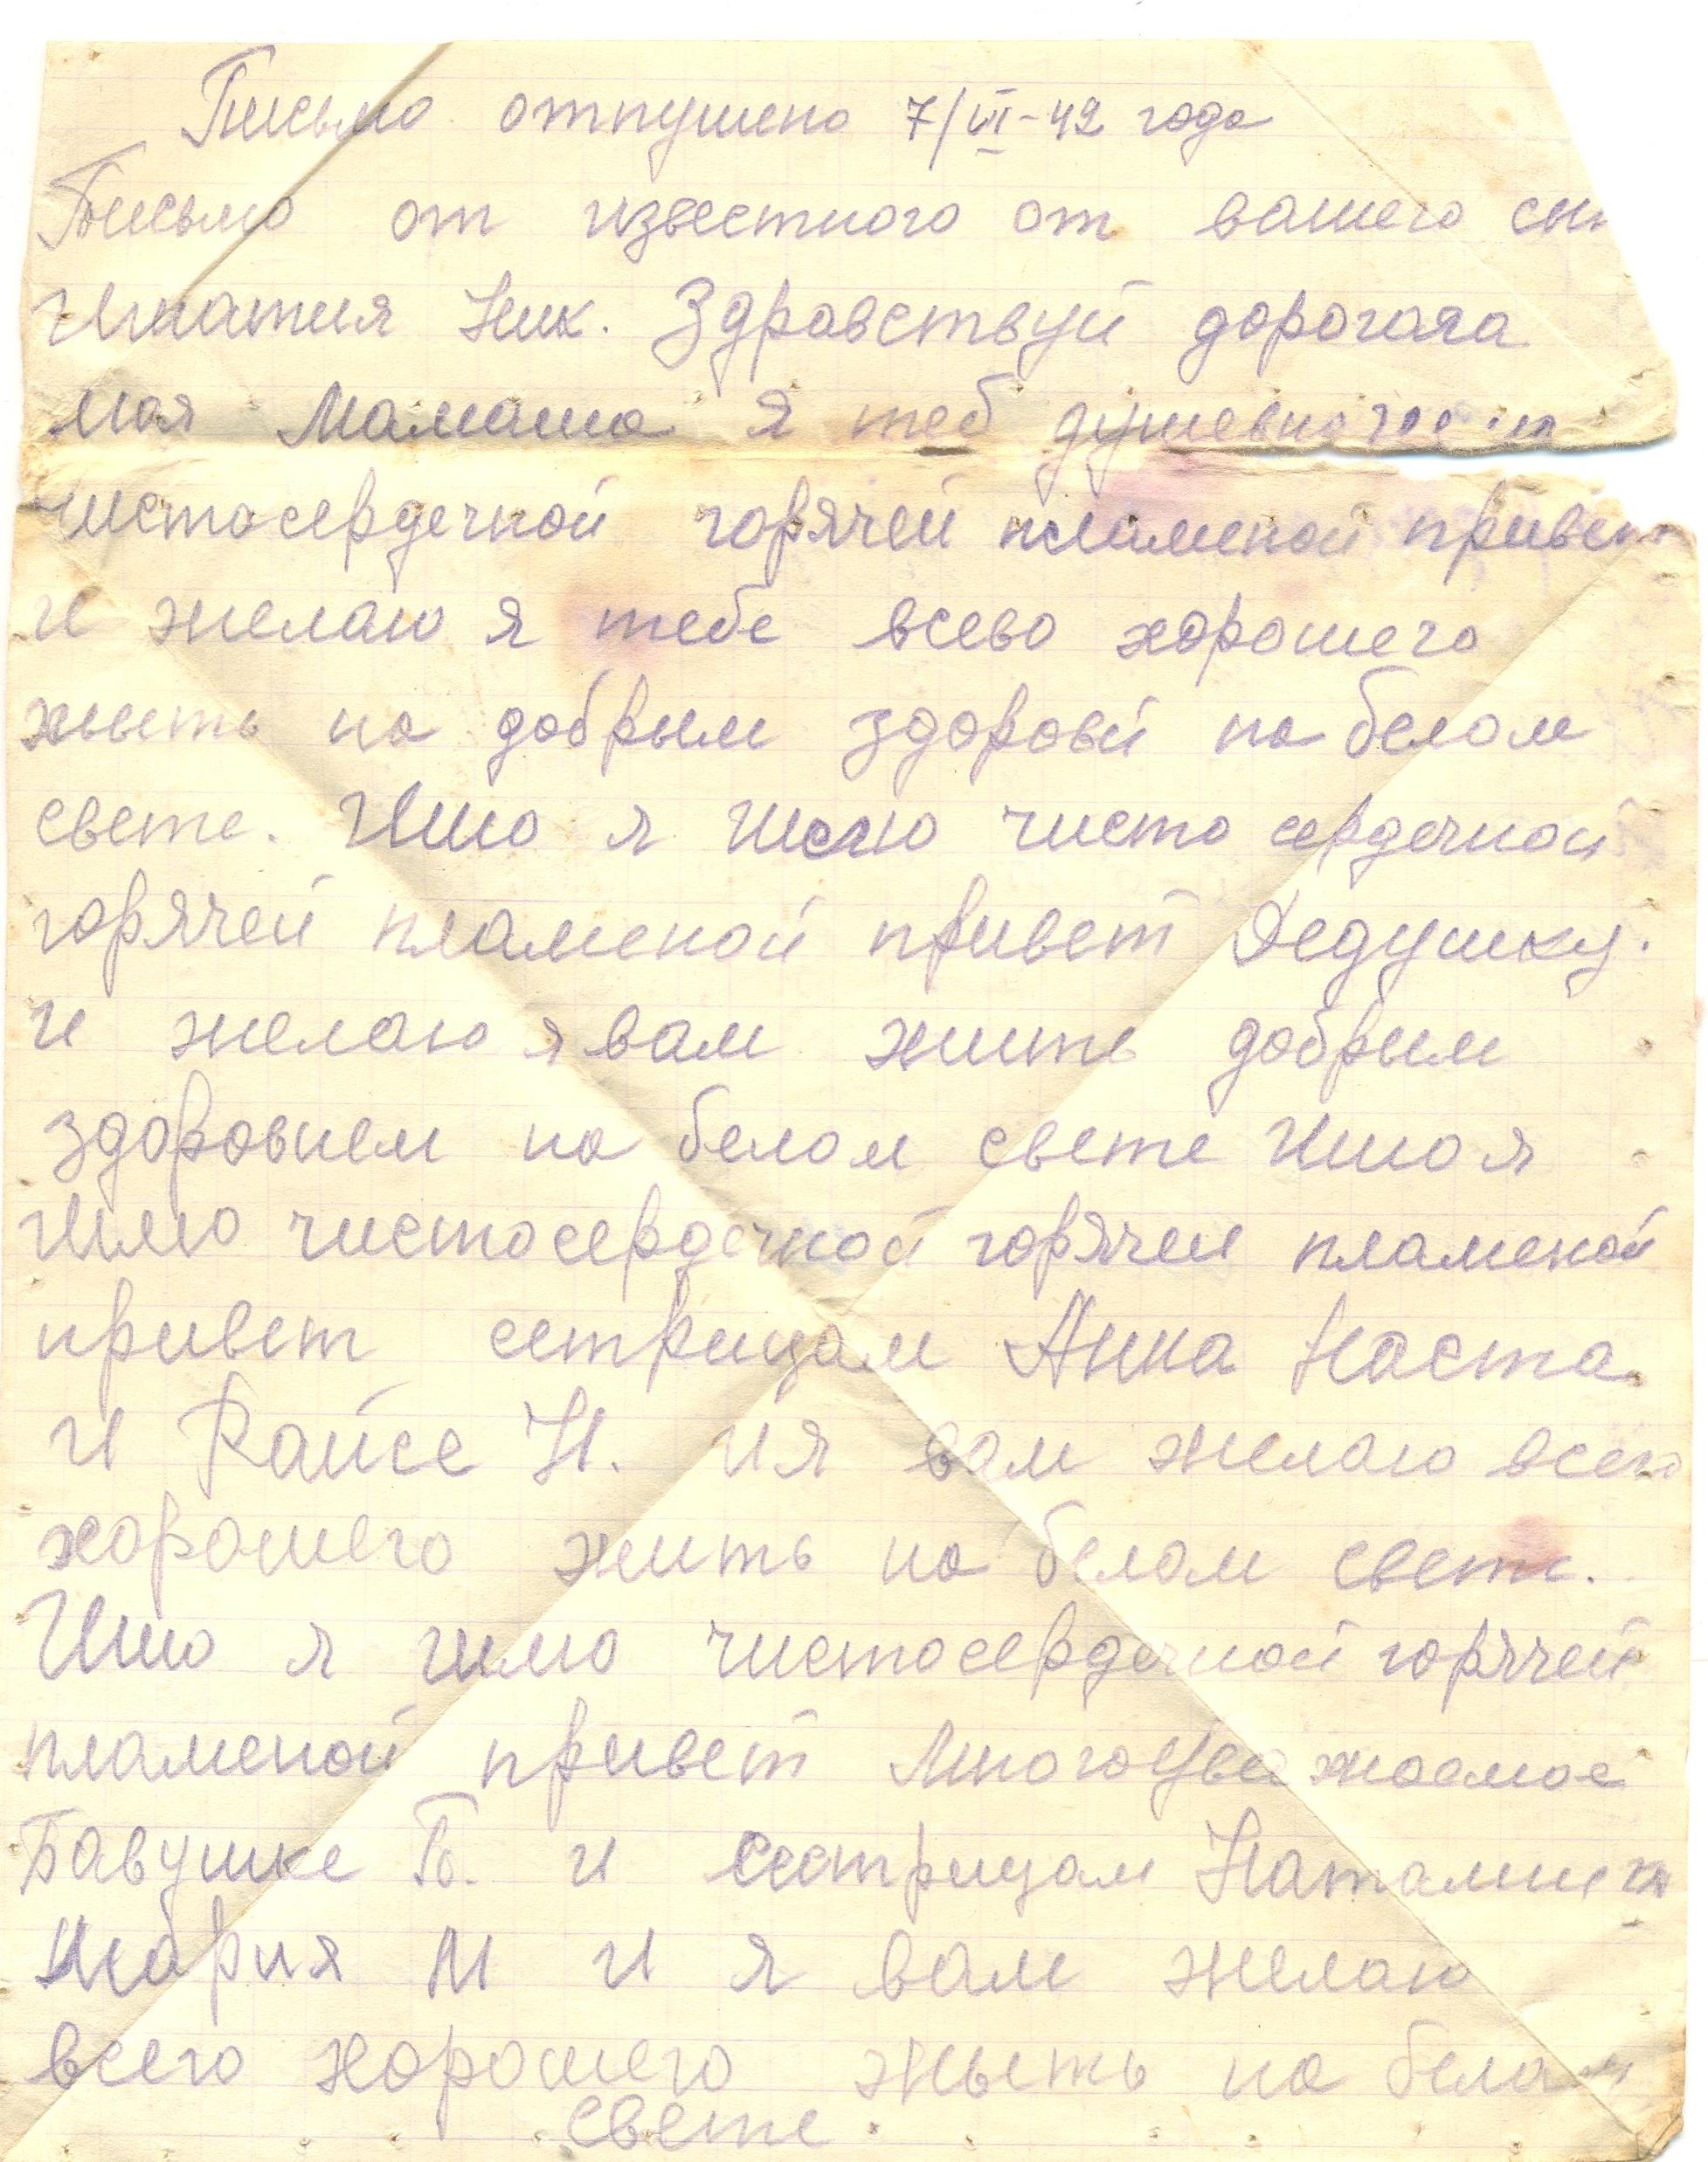 Письмо отпушено 7/VI-42 года
Письмо от известного от вашего
Игнатия Ник. Здравствуй дорогая
моя Мамаша я теб душевно
чистосердечной горячей пламеной привет
и желаю я тебе всево хорошего
жыть на добрым здоровй на белом
свете. Ишо я шлю чисто сердечной
горячей пламеной привет Дедушку.
и желаю я вам жить добрым
здоровием на белом свете Ишо я
шлю чистосердечной горячей пламеной
привет сетрицам Анна Наста
и Раисе Н. и я вам желаю всего
хорошего жить на белом свете.
Ишо я шлю чистосердечной горячей
пламеной привет многоуважаемое
Бавушке Б. и сестрицам
Мария М и я вам желаю
всего хорошего жыть на белам
свете